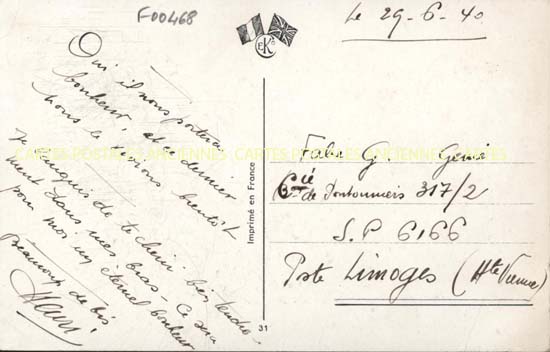 F00468
Le 29-6-40
EKC
Qu'il nous portera
bonheur, et ce dernier
nous le
bientôt
de te chérir bien tendre-
ment dans mes bras - Ce sera
pour moi un éternel bonheur
Beaucoup de bis
CARTES POSTALES ANCIENNES CARTES POSTALES ANCIENNES CARTES POSTALES ANCIENNES
Imprimé en France
31
G. Génie
Cie de Pontonniers 317/2
S.P 6166
Poste Limoges (Hte Vienne)